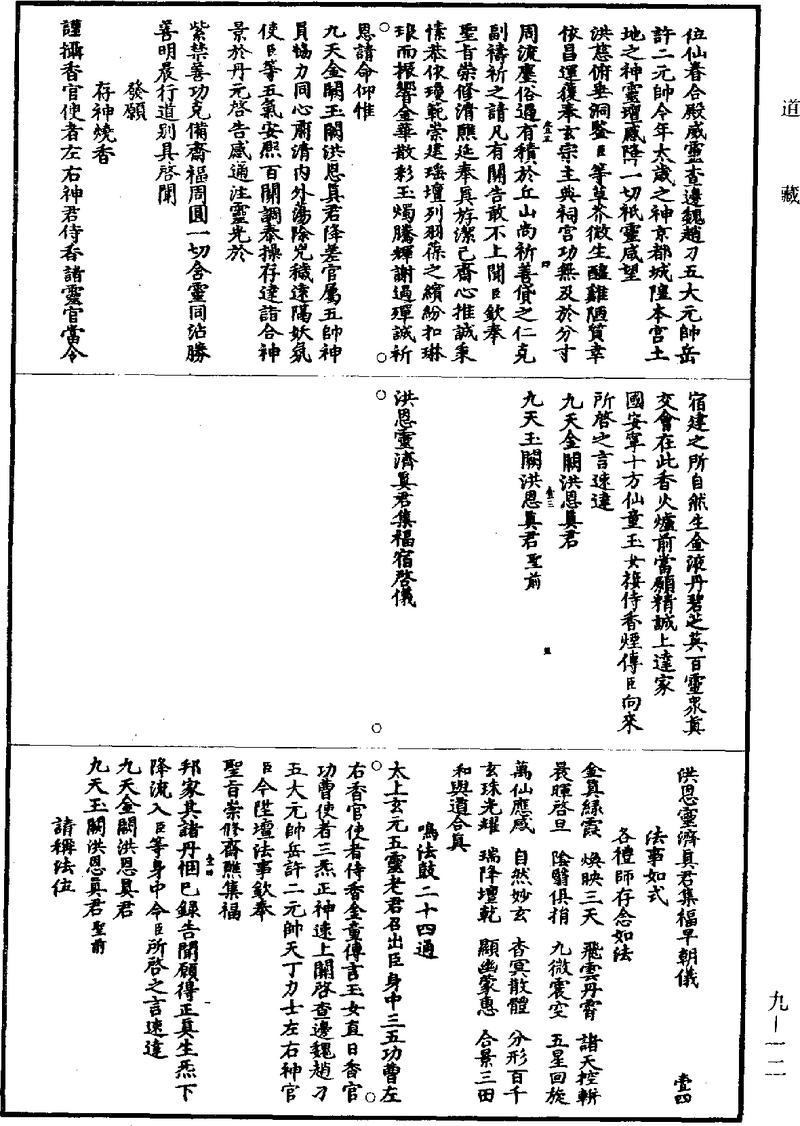 道藏
位仙眷合殿威靈杳邊魏趙刀五大元帥岳
許二元帥今年太歲之神京都城隍本宮土
地之神靈壇感降一切祇靈咸望
洪慈俯垂洞鑒臣等草芥微生醯雞陋質幸
依昌運獲奉玄宗主典祠宮功無及於分寸
周流塵俗過有積於丘山尚祈善貸之仁克
副禱祈之請凡有關告敢不上聞臣欽奉
聖旨崇修清醮廷奉具斿潔己齋心推誠秉
愫恭依瓊範崇建瑤壇列羽葆之繽紛扣琳
琅而振響金華散彩玉燭騰輝謝過殫誠祈
恩請命仰惟
九天金闕玉闕洪恩真君降差官屬五帥神
員協力同心肅清內外蕩除兇穢遠隔妖氛
使臣等五氣安熙百關調泰操存達詣合神
景於丹元啓告感通注靈光於
紫禁善功克備齋福周圓一切含靈同沾勝
善明晨行道別具啓聞
發願
存神燒香
謹攝香官使者左右神君侍香諸靈官當令
宿建之所自然生金液丹碧芝英百靈衆真
交會在此香火爐前當願精誠上達家
國安寧十方仙童玉女接侍香煙傳臣向來
所啓之言速達
九天金闕洪恩真君
九天玉闕洪恩真君聖前
洪恩靈濟真君集福宿啓儀
洪恩靈濟真君集福早朝儀
壹四
法事如式
各禮師存念如法
金真綠霞 煥映三天 飛雲丹霄 諸天控輧
晨暉啓旦 陰翳俱捐 九微震空 五星回旋
萬仙應感 自然妙玄 杳冥散體 分形百千
玄珠光耀 瑞降壇乾 顯幽蒙惠 合景三田
和與道合真
鳴法鼓二十四通
太上玄元五靈老君召出臣身中三五功曹左
右香官使者侍香金童傳言玉女直日香官
功曹使者三炁正神速上關啓杳邊魏趙刀
五大元帥岳許二元帥天丁力士左右神官
臣今陞壇法事欽奉
聖旨崇修齋醮集福
邦家其諸丹悃已錄告聞願得正真生炁下
降流入臣等身中令臣所啓之言速達
九天金闕洪恩真君
九天玉闕洪恩真君聖前
請稱法位
九—一二